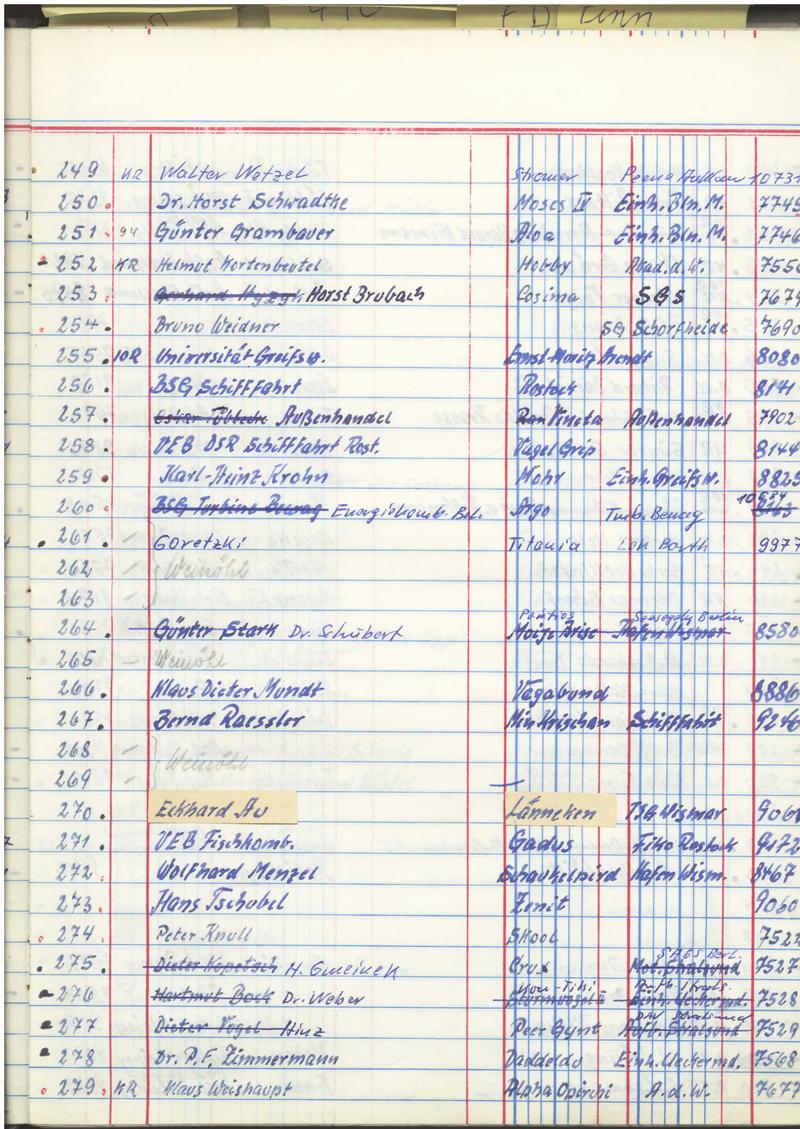 249 KR Walter Wetzel Stromer Peene 10731
250. Dr. Horst Schwadthe Moses IV Einh. Bln. M. 7745
251. 94 Günter Grambauer Aloa Einh. Bln. M. 7746
252 KR Helmut Kortenbeutel Hobby Akad. d. W. 7550
253. Gerhard Horst Brubach Cosima SGS 7674
254. Bruno Weidner SG Schorfheide 7690
255. 10R Universität Greifsw. Ernst-Moritz Arndt 8080
256. BSG Schifffahrt Rostock 8141
257. Außenhandel Ran Vineta Außenhandel 7902
258. VEB DSR Schifffahrt Rost. Vogel Grip 8144
259. Karl-Heinz Krohn Mohr Einh. Greifsw. 8825
260. BSG Turbine Bewag Energiekomb. Bel. Argo Turb. Bewag
261 Goretzki Titania Lok Barth 9977
262 Weinöhl
263
264. Günter Stark Dr. Schubert Hafen Wismar 8580
265 Weinöhl
266. Klaus Dieter Mundt Vagabund 8886
267. Bernd Raessler Min Hrischan Schifffahrt 9246
268 Weinöhl
269
270. Eckhard Au Länneken TSG Wismar 906
271. VEB Fischkomb. Gadus Fiko Rostock 9172
272. Wolfhard Menzel Schaukelpird Hafen Wism. 8467
273. Hans Tschubel Zenit 9060
274. Peter Knull Skool 7522
275. Dieter Kopetsch H. Gmeinek Crux Mot. Stralsund 7527
Kon-Tiki
276 Hartmut Bock Dr. Weber Sturmvogel II Einh. Ueckermd. 7528
277 Dieter Vogel Hinz Peer Gynt Aufb. Stralsund 7529
278 Dr. P.F. Zimmermann Daddeldu Einh. Ueckermd. 7568
279. KR Klaus Weishaupt Alpha A.d.W. 7677